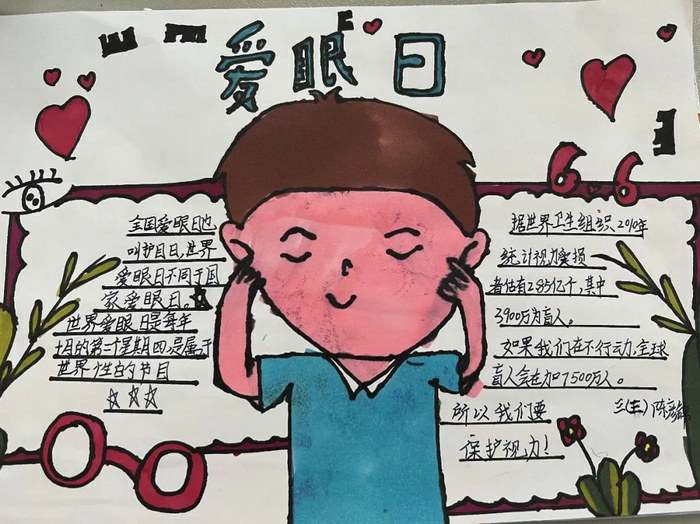 爱眼日
6.6
全国爱眼日也
叫护目日,世界
爱眼日不同于国
家爱眼日。
世界爱眼日是每年
十月的第二个星期四,是属于
世界性的节目
据世界卫生组织,2010年
统计视力受损
者估有2.85亿个,其中
3900万为盲人。
如果我们在不行动,全球
盲人会在加7500万人。
所以我们要
保护视力!
三(三)陈